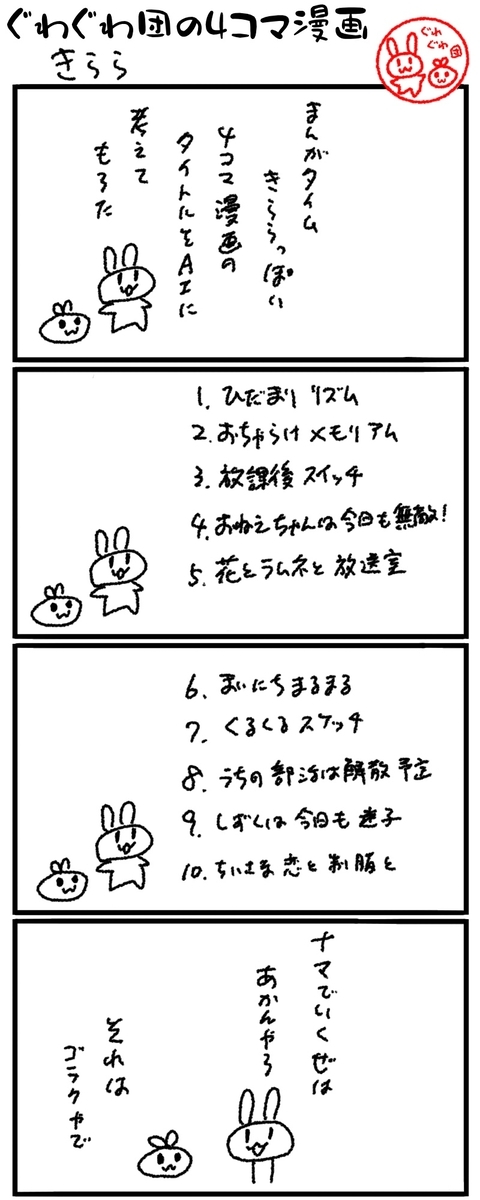 ぐわぐわ団の4コマ漫画
きらら
ぐわ
ぐわ
団
まんがタイム
きららっぽい
4コマ漫画の
タイトルをAIに
考えて
もろた
1. ひだまりリズム
2. おちゃらけメモリアム
3. 放課後スイッチ
4. おねえちゃんは今日も無敵!
5. 花とラムネと放送室
6. まいにちまるまる
7. くるくるスケッチ
8. うちの部活は解散予定
9. しずくは今日も迷子
10. ちいさな恋と制服と
ナマでいくぜは
あかんやろ
それは
ゴラクやで